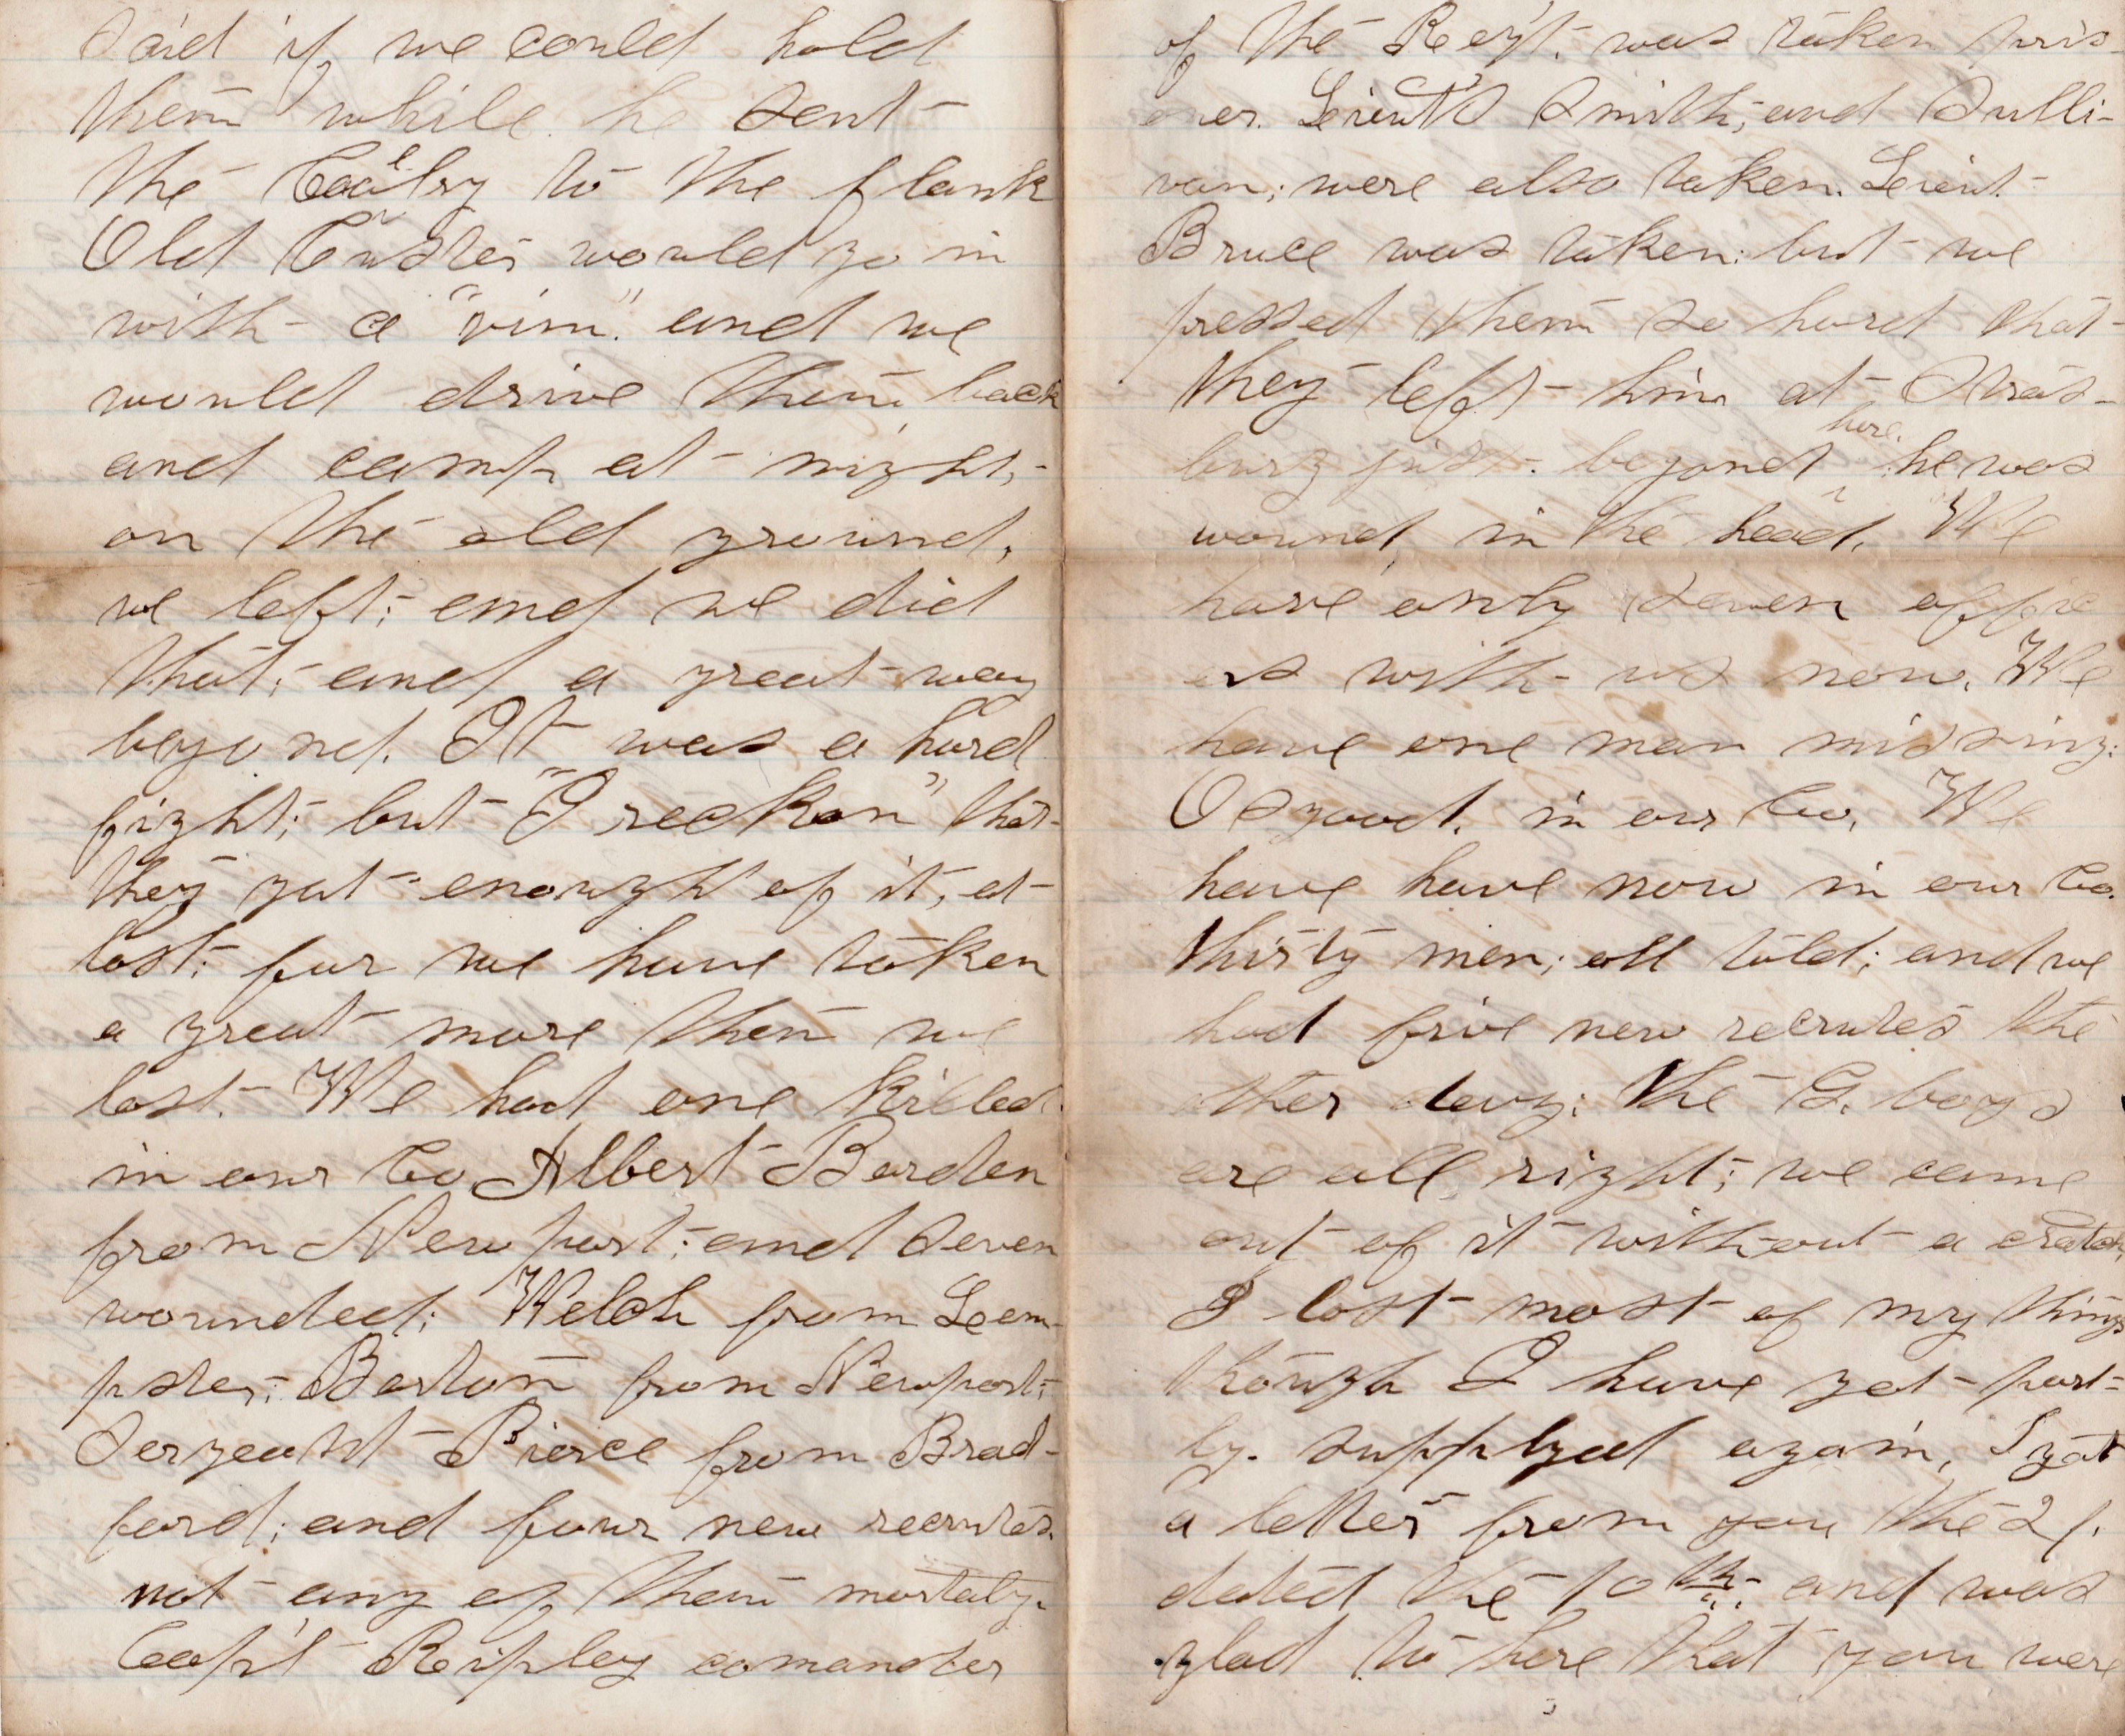 said if we could hold
them while he sent
the Coalry to the flank
Old Custer would go in
with a "vim" and we
would drive them back
and camp at night,
on the old ground,
we left; and we did
that; and a great way
beyond. It was a hard
fight; but "I reckon" that
they got enough of it, at
last; for we have taken
a great more then we
lost. We had one killed
in our Co Albert Barden
from Newport; and seven
wounded; Welch from Leem-
pster; Barton from Newport;
Sergeant Pierce from Brad-
ford; and four new recrutes.
not any of them mortaly.
Cap't Ripley comander
of the Reg't. was taken pris
oner. Leiut's Smith, and Sulli-
van; were also taken. Leiut
Bruce was taken: but we
pressed them so hard that
they left him at Stras-
burg just beyond here. he was
wound in the head. We
have only seven offic
ers with us now. We
have one man missing:
Osgood. in our Co. We
have have now in our Co.
thirty men; all told; and we
had five new recrutes the
other day: the G. boys
are all right; we came
out of it with-out a cratch,
I lost most of my things
though I have got part-
ly. supplyed again, I got
a letter from you the 21.
dated the 10th. and was
glad to here that you were